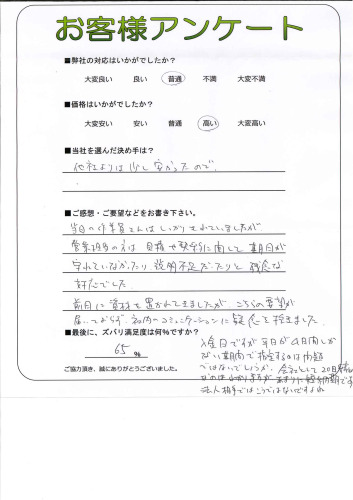 お客様アンケート
■弊社の対応はいかがでしたか?
大変良い 良い 普通 不満 大変不満
■価格はいかがでしたか?
大変安い 安い 普通 高い 大変高い
■当社を選んだ決め手は?
他社よりは少し安かったので。
■ご感想・ご要望などをお書き下さい。
当日の作業員さんはしっかりされていましたが
営業担当の方は見積や契約に関して期日が
守れていなかったり、説明不足だったりと残念な
対応でした。
前日に資材を置かれてきましたが、こちらの要望が
届いておらず社内のコミュニケーションに疑念を抱きました。
■最後に、ズバリ満足度は何%ですか?
65 %
ご協力頂き、誠にありがとうございました。
入金日ですが平日が4日間しか
ない期間で指定するのは問題
ではないでしょうか。会社として20日
なのはわかりますが あまりに短納期です
法人相手ではこうではないですよね